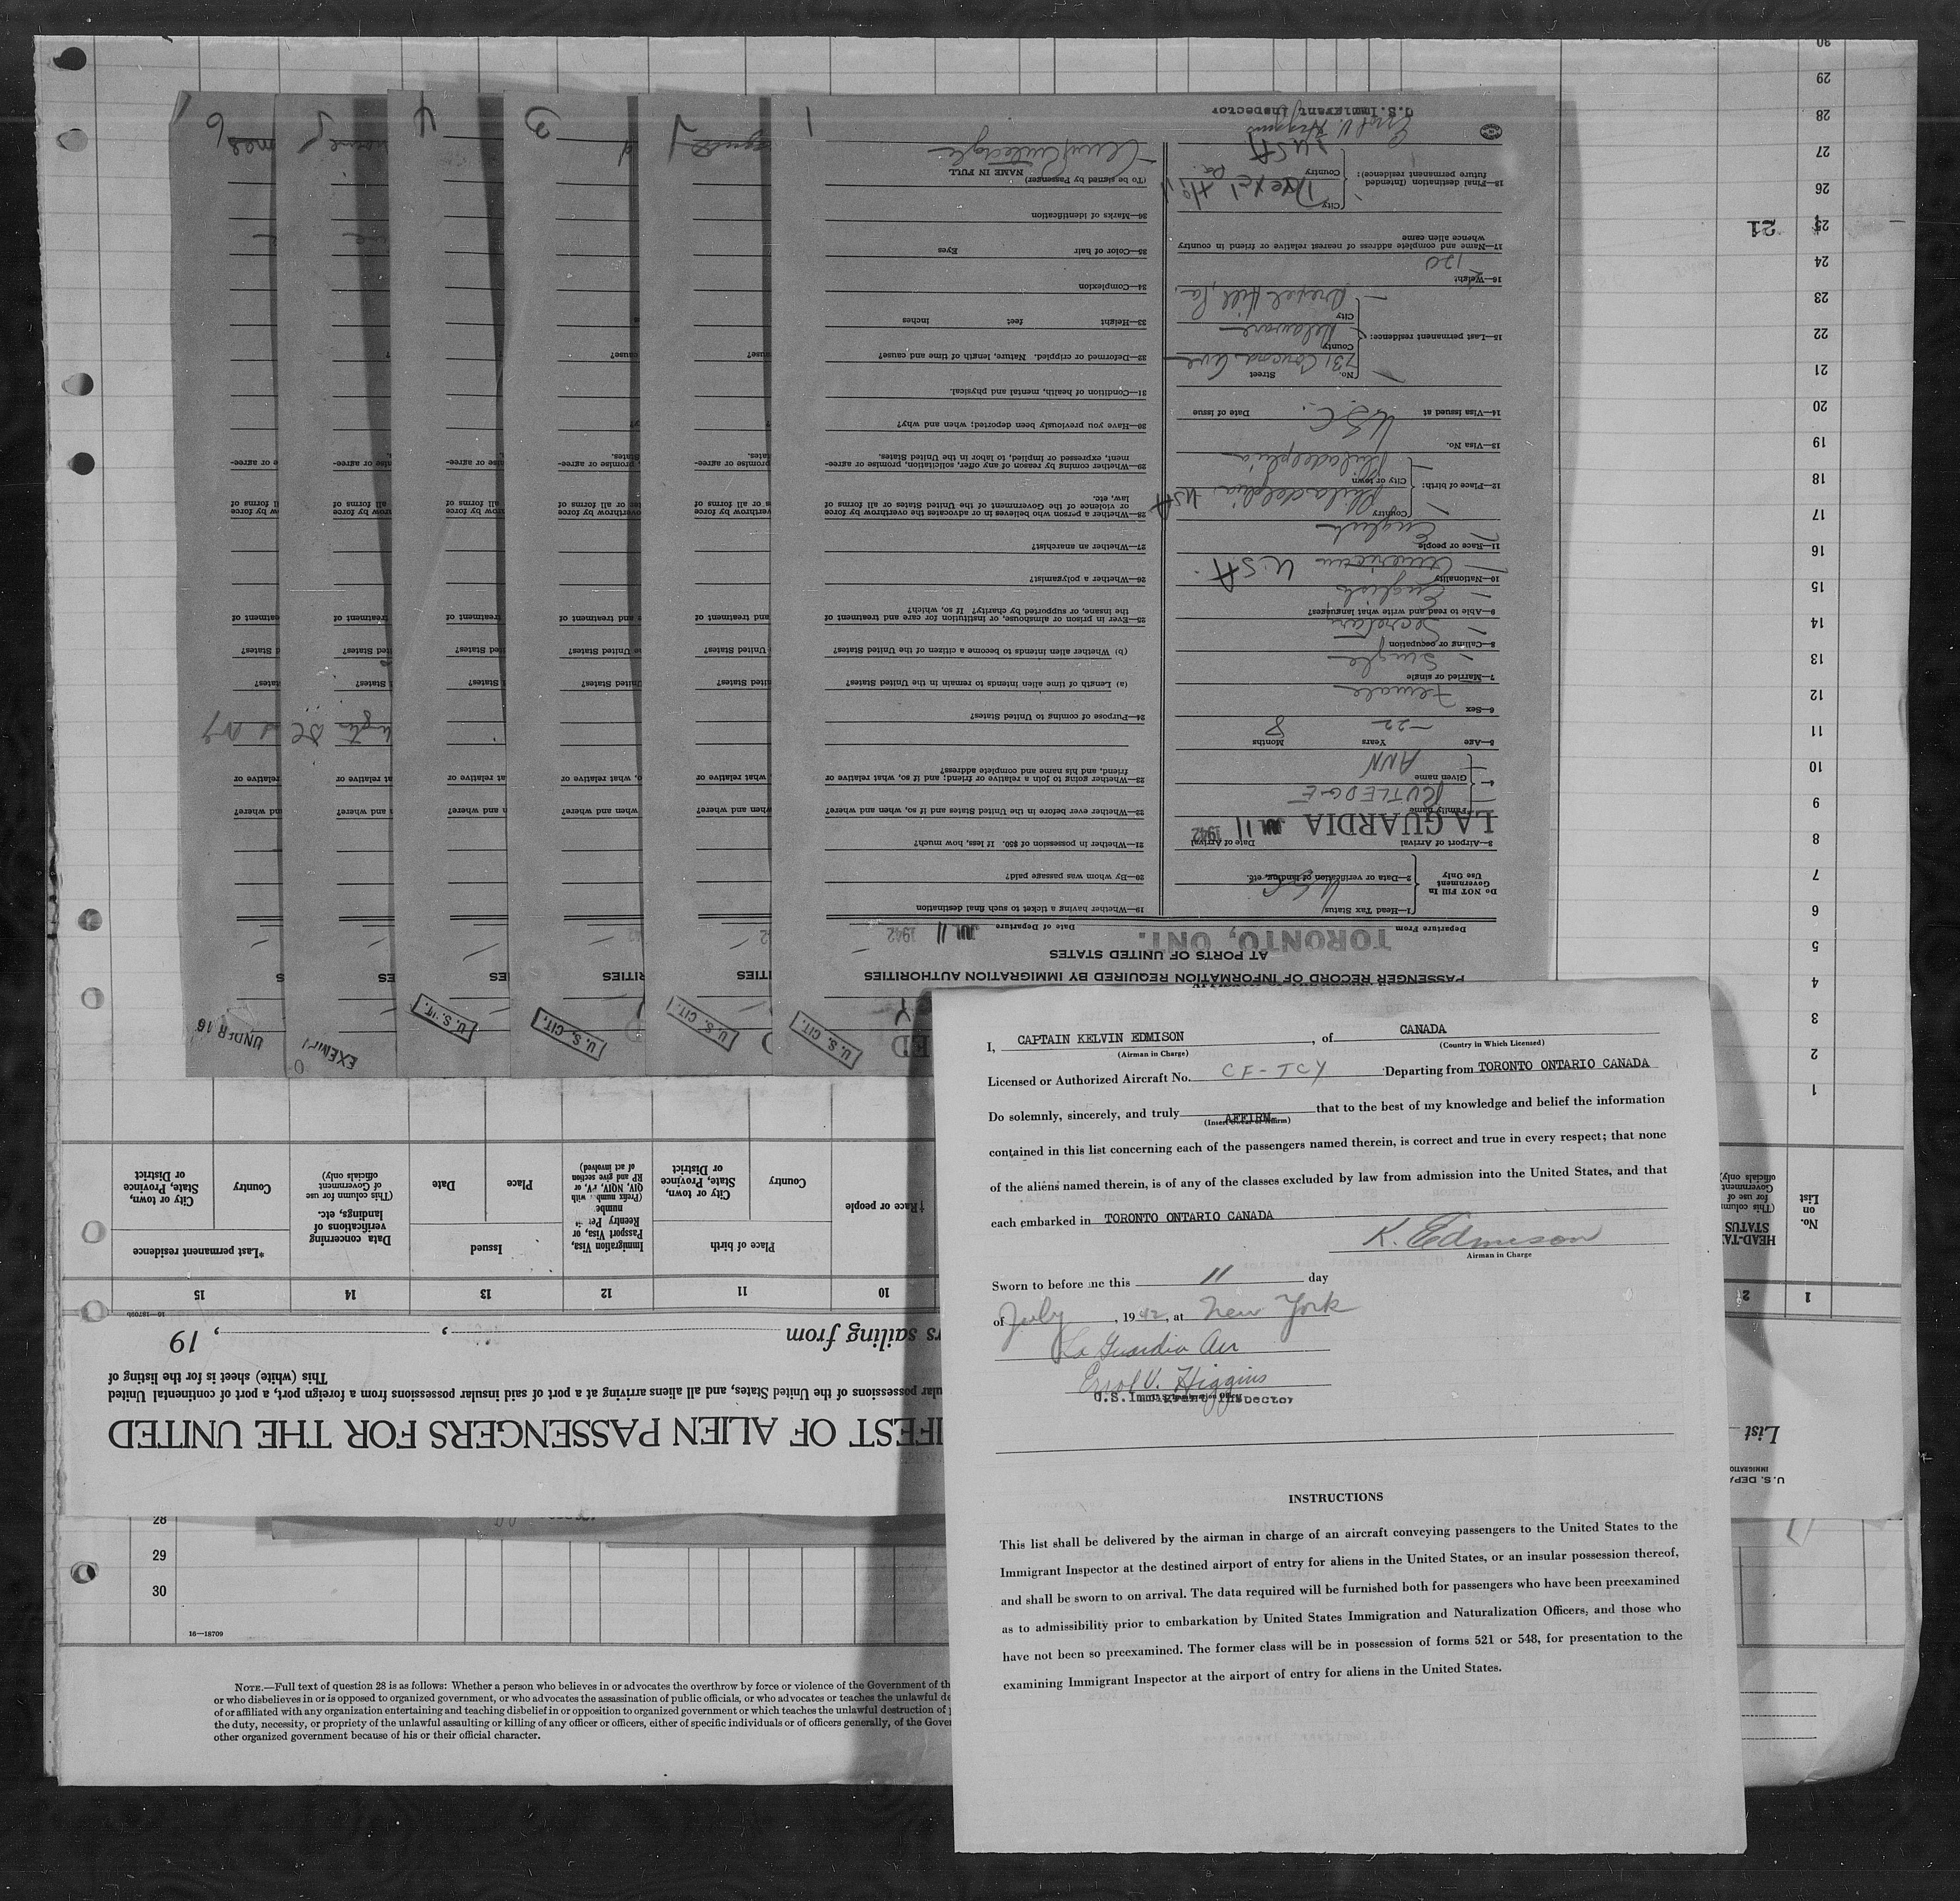 I, CAPTAIN KELVIN EDMISON, of CANADA
(Airman in Charge) (Country in Which Licensed)
Licensed or Authorized Aircraft No. CF-TCY Departing from TORONTO ONTARIO CANADA
Do solemnly, sincerely, and truly AFFIRM that to the best of my knowledge and belief the information
contained in this list concerning each of the passengers named therein, is correct and true in every respect; that none
of the aliens named therein, is of any of the classes excluded by law from admission into the United States, and that
each embarked in TORONTO ONTARIO CANADA
K. Edmison
Airman in Charge
Sworn to before me this 11 day
of July, 1942, at New York
La Guardia Air
Errol V. Higgins
U.S. Immigrant Inspector
INSTRUCTIONS
This list shall be delivered by the airman in charge of an aircraft conveying passengers to the United States to the
Immigrant Inspector at the destined airport of entry for aliens in the United States, or an insular possession thereof,
and shall be sworn to on arrival. The data required will be furnished both for passengers who have been preexamined
as to admissibility prior to embarkation by United States Immigration and Naturalization Officers, and those who
have not been so preexamined. The former class will be in possession of forms 521 or 548, for presentation to the
examining Immigrant Inspector at the airport of entry for aliens in the United States.
28
29
30
16—18709
NOTE.—Full text of question 28 is as follows: Whether a person who believes in or advocates the overthrow by force or violence of the Government of
or who disbelieves in or is opposed to organized government, or who advocates the assassination of public officials, or who advocates or teaches the unlawful
of or affiliated with any organization entertaining and teaching disbelief in or opposition to organized government or which teaches the unlawful destruction of
the duty, necessity, or propriety of the unlawful assaulting or killing of any officer or officers, either of specific individuals or of officers generally, of the
other organized government because of his or their official character.
List
IFEST OF ALIEN PASSENGERS FOR THE UNITED
possessions of the United States, and all aliens arriving at a port of said insular possessions from a foreign port, a port of continental United
This (white) sheet is for the listing of
rs sailing from , , 19
1 2 10 11 12 13 14 15
No. on List
HEAD-TAX STATUS
(This column for use of Government officials only)
†Race or people
Place of birth
Country
City or town, State, Province or District
Immigration Visa, Passport Visa, or Reentry Permit number
(Prefix number with QIV, NQIV, PV, or RP and give section of act involved)
Issued
Place
Date
Data concerning verifications of landings, etc.
(This column for use of Government officials only)
*Last permanent residence
Country
City or town, State, Province or District
1
2
3
4
5
6
7
8
9
10
11
12
13
14
15
16
17
18
19
20
21
22
23
24
25 21
26
27
28
29
30
U.S. CIT.
U.S. CIT.
U.S. CIT.
EXEMPT
UNDER 16
PASSENGER RECORD OF INFORMATION REQUIRED BY IMMIGRATION AUTHORITIES
AT PORTS OF UNITED STATES
Departure From TORONTO, ONT. Date of Departure JUL 11 1942
Do NOT Fill In
Government
Use Only
1—Head Tax Status
2—Data or verification of landing, etc. USC
3—Airport of Arrival LA GUARDIA Date of Arrival JUL 11 1942
4— Family name RUTLEDGE
Given name ANN
5—Age Years 22 Months 8
6—Sex Female
7—Married or single Single
8—Calling or occupation Secretary
9—Able to read and write what languages? English
10—Nationality American U.S.A.
11—Race or people English
12—Place of birth: Country Philadelphia USA
City or town Philadelphia
13—Visa No.
14—Visa issued at U.S.C. Date of issue
15—Last permanent residence: No. Street 731 Concord Ave
County Delaware
City Drexel Hill, Pa.
16—Weight 120
17—Name and complete address of nearest relative or friend in country
whence alien came
18—Final destination (Intended
future permanent residence): City Drexel Hill Pa
Country USA
Errol V. Higgins
U.S. Immigrant Inspector
19—Whether having a ticket to such final destination
20—By whom was passage paid?
21—Whether in possession of $50. If less, how much?
22—Whether ever before in the United States and if so, when and where?
23—Whether going to join a relative or friend; and if so, what relative or
friend, and his name and complete address?
24—Purpose of coming to United States?
(a) Length of time alien intends to remain in the United States?
(b) Whether alien intends to become a citizen of the United States?
25—Ever in prison or almshouse, or institution for care and treatment of
the insane, or supported by charity? If so, which?
26—Whether a polygamist?
27—Whether an anarchist?
28—Whether a person who believes in or advocates the overthrow by force
or violence of the Government of the United States or all forms of
law, etc.
29—Whether coming by reason of any offer, solicitation, promise or agree-
ment, expressed or implied, to labor in the United States.
30—Have you previously been deported; when and why?
31—Condition of health, mental and physical.
32—Deformed or crippled. Nature, length of time and cause?
33—Height feet inches
34—Complexion
35—Color of hair Eyes
36—Marks of identification
(To be signed by Passenger) NAME IN FULL
Ann Rutledge
1
3
4
5
6